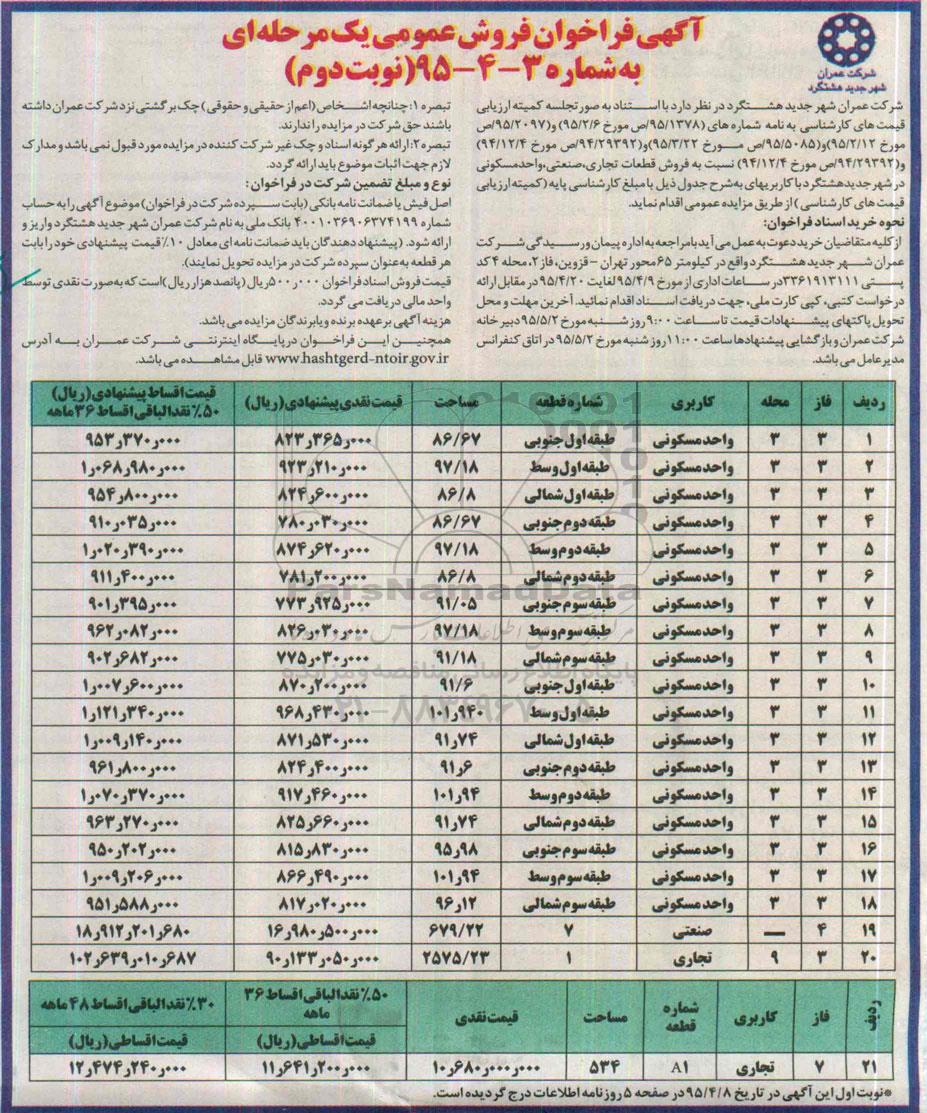 شرکت عمران
شهر جدید هشتگرد
آگهی فراخوان فروش عمومی یک مرحله‌ای
به شماره ۳-۴-۹۵ (نوبت دوم)
شرکت عمران شهر جدید هشتگرد در نظر دارد با استناد به صورتجلسه کمیته ارزیابی
قیمت های کارشناسی به نامه شماره های (۹۵/۱۳۷۸/ص مورخ ۹۵/۲/۶) و(۹۵/۲۰۹۷/ص
مورخ ۹۵/۲/۱۲)و(۹۵/۵۰۸۵/ص مورخ ۹۵/۳/۲۲)و(۹۴/۲۹۳۹۲/ص مورخ ۹۴/۱۲/۴)
و(۹۴/۲۹۳۹۲/ص مورخ ۹۴/۱۲/۴) نسبت به فروش قطعات تجاری،صنعتی،واحدمسکونی
در شهر جدید هشتگرد با کاربریهای به شرح جدول ذیل با مبلغ کارشناسی پایه (کمیته ارزیابی
قیمت های کارشناسی) از طریق مزایده عمومی اقدام نماید.
نحوه خرید اسناد فراخوان:
از کلیه متقاضیان خرید دعوت به عمل می آید با مراجعه به اداره پیمان و رسیدگی شرکت
عمران شهر جدید هشتگرد واقع در کیلومتر ۶۵ محور تهران - قزوین، فاز ۲، محله ۴ کد
پستی ۳۳۶۱۹۱۳۱۱۱ در ساعات اداری از مورخ ۹۵/۴/۹ لغایت ۹۵/۴/۲۰ در مقابل ارائه
درخواست کتبی، کپی کارت ملی، جهت دریافت اسناد اقدام نمائید. آخرین مهلت و محل
تحویل پاکتهای پیشنهادات قیمت تا ساعت ۹:۰۰ روز شنبه مورخ ۹۵/۵/۲ دبیر خانه
شرکت عمران و بازگشایی پیشنهادها ساعت ۱۱:۰۰ روز شنبه مورخ ۹۵/۵/۲ در اتاق کنفرانس
مدیر عامل می باشد.
تبصره ۱: چنانچه اشخاص (اعم از حقیقی و حقوقی) چک برگشتی نزد شرکت عمران داشته
باشند حق شرکت در مزایده را ندارند.
تبصره ۲: ارائه هر گونه اسناد و چک غیر شرکت کننده در مزایده مورد قبول نمی باشد و مدارک
لازم جهت اثبات موضوع باید ارائه گردد.
نوع و مبلغ تضمین شرکت در فراخوان:
اصل فیش یا ضمانت نامه بانکی (بابت سپرده شرکت در فراخوان) موضوع آگهی را به حساب
شماره ۴۰۰۱۰۳۶۹۰۶۳۷۴۱۹۹ بانک ملی به نام شرکت عمران شهر جدید هشتگرد واریز و
ارائه شود. (پیشنهاد دهندگان باید ضمانت نامه ای معادل ۱۰٪ قیمت پیشنهادی خود را بابت
هر قطعه به عنوان سپرده شرکت در مزایده تحویل نمایند).
قیمت فروش اسناد فراخوان ۵۰۰٫۰۰۰ ریال (پانصد هزار ریال) است که به صورت نقدی توسط
واحد مالی دریافت می گردد.
هزینه آگهی بر عهده برنده و یا برندگان مزایده می باشد.
همچنین این فراخوان در پایگاه اینترنتی شرکت عمران به آدرس
www.hashtgerd-ntoir.gov.ir قابل مشاهده می باشد.
ردیف | فاز | محله | کاربری | شماره قطعه | مساحت | قیمت نقدی پیشنهادی (ریال) | قیمت اقساط پیشنهادی (ریال) ۵۰٪ نقد الباقی اقساط ۳۶ ماهه
۱ | ۳ | ۳ | واحد مسکونی | طبقه اول جنوبی | ۸۶/۶۷ | ۸۲۳٫۳۶۵٫۰۰۰ | ۹۵۳٫۳۷۰٫۰۰۰
۲ | ۳ | ۳ | واحد مسکونی | طبقه اول وسط | ۹۷/۱۸ | ۹۲۳٫۲۱۰٫۰۰۰ | ۱٫۰۶۸٫۹۸۰٫۰۰۰
۳ | ۳ | ۳ | واحد مسکونی | طبقه اول شمالی | ۸۶/۸ | ۸۲۴٫۶۰۰٫۰۰۰ | ۹۵۴٫۸۰۰٫۰۰۰
۴ | ۳ | ۳ | واحد مسکونی | طبقه دوم جنوبی | ۸۶/۶۷ | ۷۸۰٫۰۳۰٫۰۰۰ | ۹۱۰٫۰۳۵٫۰۰۰
۵ | ۳ | ۳ | واحد مسکونی | طبقه دوم وسط | ۹۷/۱۸ | ۸۷۴٫۶۲۰٫۰۰۰ | ۱٫۰۲۰٫۳۹۰٫۰۰۰
۶ | ۳ | ۳ | واحد مسکونی | طبقه دوم شمالی | ۸۶/۸ | ۷۸۱٫۲۰۰٫۰۰۰ | ۹۱۱٫۴۰۰٫۰۰۰
۷ | ۳ | ۳ | واحد مسکونی | طبقه سوم جنوبی | ۹۱/۰۵ | ۷۷۳٫۹۲۵٫۰۰۰ | ۹۰۱٫۳۹۵٫۰۰۰
۸ | ۳ | ۳ | واحد مسکونی | طبقه سوم وسط | ۹۷/۱۸ | ۸۲۶٫۰۳۰٫۰۰۰ | ۹۶۲٫۰۸۲٫۰۰۰
۹ | ۳ | ۳ | واحد مسکونی | طبقه سوم شمالی | ۹۱/۱۸ | ۷۷۵٫۰۳۰٫۰۰۰ | ۹۰۲٫۶۸۲٫۰۰۰
۱۰ | ۳ | ۳ | واحد مسکونی | طبقه اول جنوبی | ۹۱/۶ | ۸۷۰٫۲۰۰٫۰۰۰ | ۱٫۰۰۷٫۶۰۰٫۰۰۰
۱۱ | ۳ | ۳ | واحد مسکونی | طبقه اول وسط | ۱۰۱٫۹۴۰ | ۹۶۸٫۴۳۰٫۰۰۰ | ۱٫۱۲۱٫۳۴۰٫۰۰۰
۱۲ | ۳ | ۳ | واحد مسکونی | طبقه اول شمالی | ۹۱٫۷۴ | ۸۷۱٫۵۳۰٫۰۰۰ | ۱٫۰۰۹٫۱۴۰٫۰۰۰
۱۳ | ۳ | ۳ | واحد مسکونی | طبقه دوم جنوبی | ۹۱٫۶ | ۸۲۴٫۴۰۰٫۰۰۰ | ۹۶۱٫۸۰۰٫۰۰۰
۱۴ | ۳ | ۳ | واحد مسکونی | طبقه دوم وسط | ۱۰۱٫۹۴ | ۹۱۷٫۴۶۰٫۰۰۰ | ۱٫۰۷۰٫۳۷۰٫۰۰۰
۱۵ | ۳ | ۳ | واحد مسکونی | طبقه دوم شمالی | ۹۱٫۷۴ | ۸۲۵٫۶۶۰٫۰۰۰ | ۹۶۳٫۲۷۰٫۰۰۰
۱۶ | ۳ | ۳ | واحد مسکونی | طبقه سوم جنوبی | ۹۵٫۹۸ | ۸۱۵٫۸۳۰٫۰۰۰ | ۹۵۰٫۲۰۲٫۰۰۰
۱۷ | ۳ | ۳ | واحد مسکونی | طبقه سوم وسط | ۱۰۱٫۹۴ | ۸۶۶٫۴۹۰٫۰۰۰ | ۱٫۰۰۹٫۲۰۶٫۰۰۰
۱۸ | ۳ | ۳ | واحد مسکونی | طبقه سوم شمالی | ۹۶٫۱۲ | ۸۱۷٫۰۲۰٫۰۰۰ | ۹۵۱٫۵۸۸٫۰۰۰
۱۹ | ۴ | — | صنعتی | ۷ | ۶۷۹/۲۲ | ۱۶٫۹۸۰٫۵۰۰٫۰۰۰ | ۱۸٫۹۱۲٫۲۰۱٫۶۸۰
۲۰ | ۳ | ۹ | تجاری | ۱ | ۲۵۷۵/۲۳ | ۹۰٫۱۳۳٫۰۵۰٫۰۰۰ | ۱۰۲٫۶۳۹٫۰۱۰٫۶۸۷
ردیف | فاز | کاربری | شماره قطعه | مساحت | قیمت نقدی | ۵۰٪ نقد الباقی اقساط ۳۶ ماهه | ۳۰٪ نقد الباقی اقساط ۴۸ ماهه
قیمت اقساطی (ریال) | قیمت اقساطی (ریال)
۲۱ | ۷ | تجاری | A۱ | ۵۳۴ | ۱۰٫۶۸۰٫۰۰۰٫۰۰۰ | ۱۱٫۶۴۱٫۲۰۰٫۰۰۰ | ۱۲٫۴۷۴٫۲۴۰٫۰۰۰
*نوبت اول این آگهی در تاریخ ۹۵/۴/۸ در صفحه ۵ روزنامه اطلاعات درج گردیده است.
ParsNamadData
پایگاه اطلاع رسانی مناقصه و مزایده